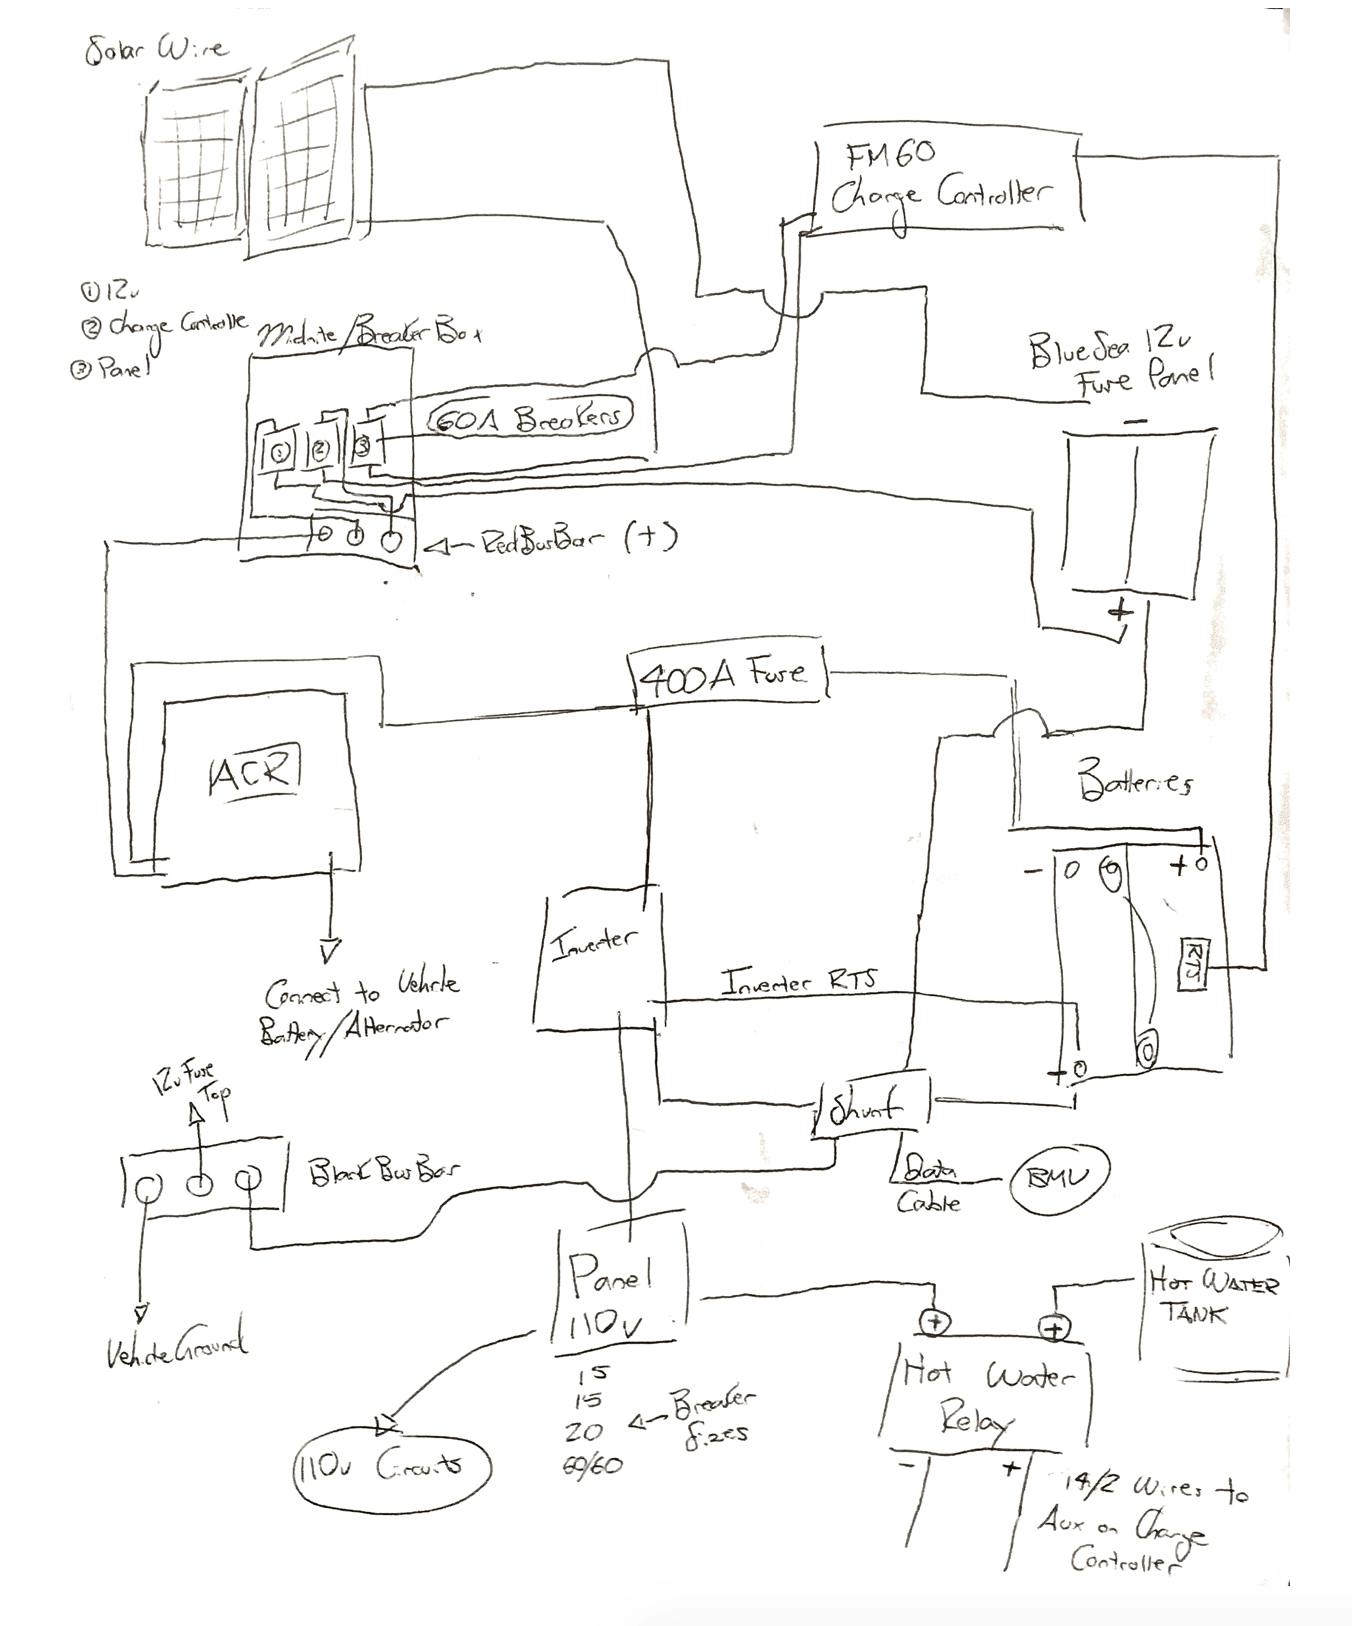 Solar Wire
FM60
Charge Controller
① 12v
② Charge Controlle
③ Panel
Midnite/Breaker Box
Blue Sea 12v
Fuse Panel
-
60A Breakers
① ② ③
RedBusBar (+)
+
400A Fuse
ACR
Batteries
- +
Inverter
RTS
Inverter RTS
Connect to Vehicle
Battery/Alternator
+
12v Fuse
Top
Shunt
Black Bus Bar
Data
Cable
BMV
Panel
110v
Hot Water
Tank
Vehicle Ground
+ +
Hot Water
Relay
15
15
20
60/60
Breaker
Sizes
110v Circuits
- +
14/2 Wires to
Aux on Charge
Controller